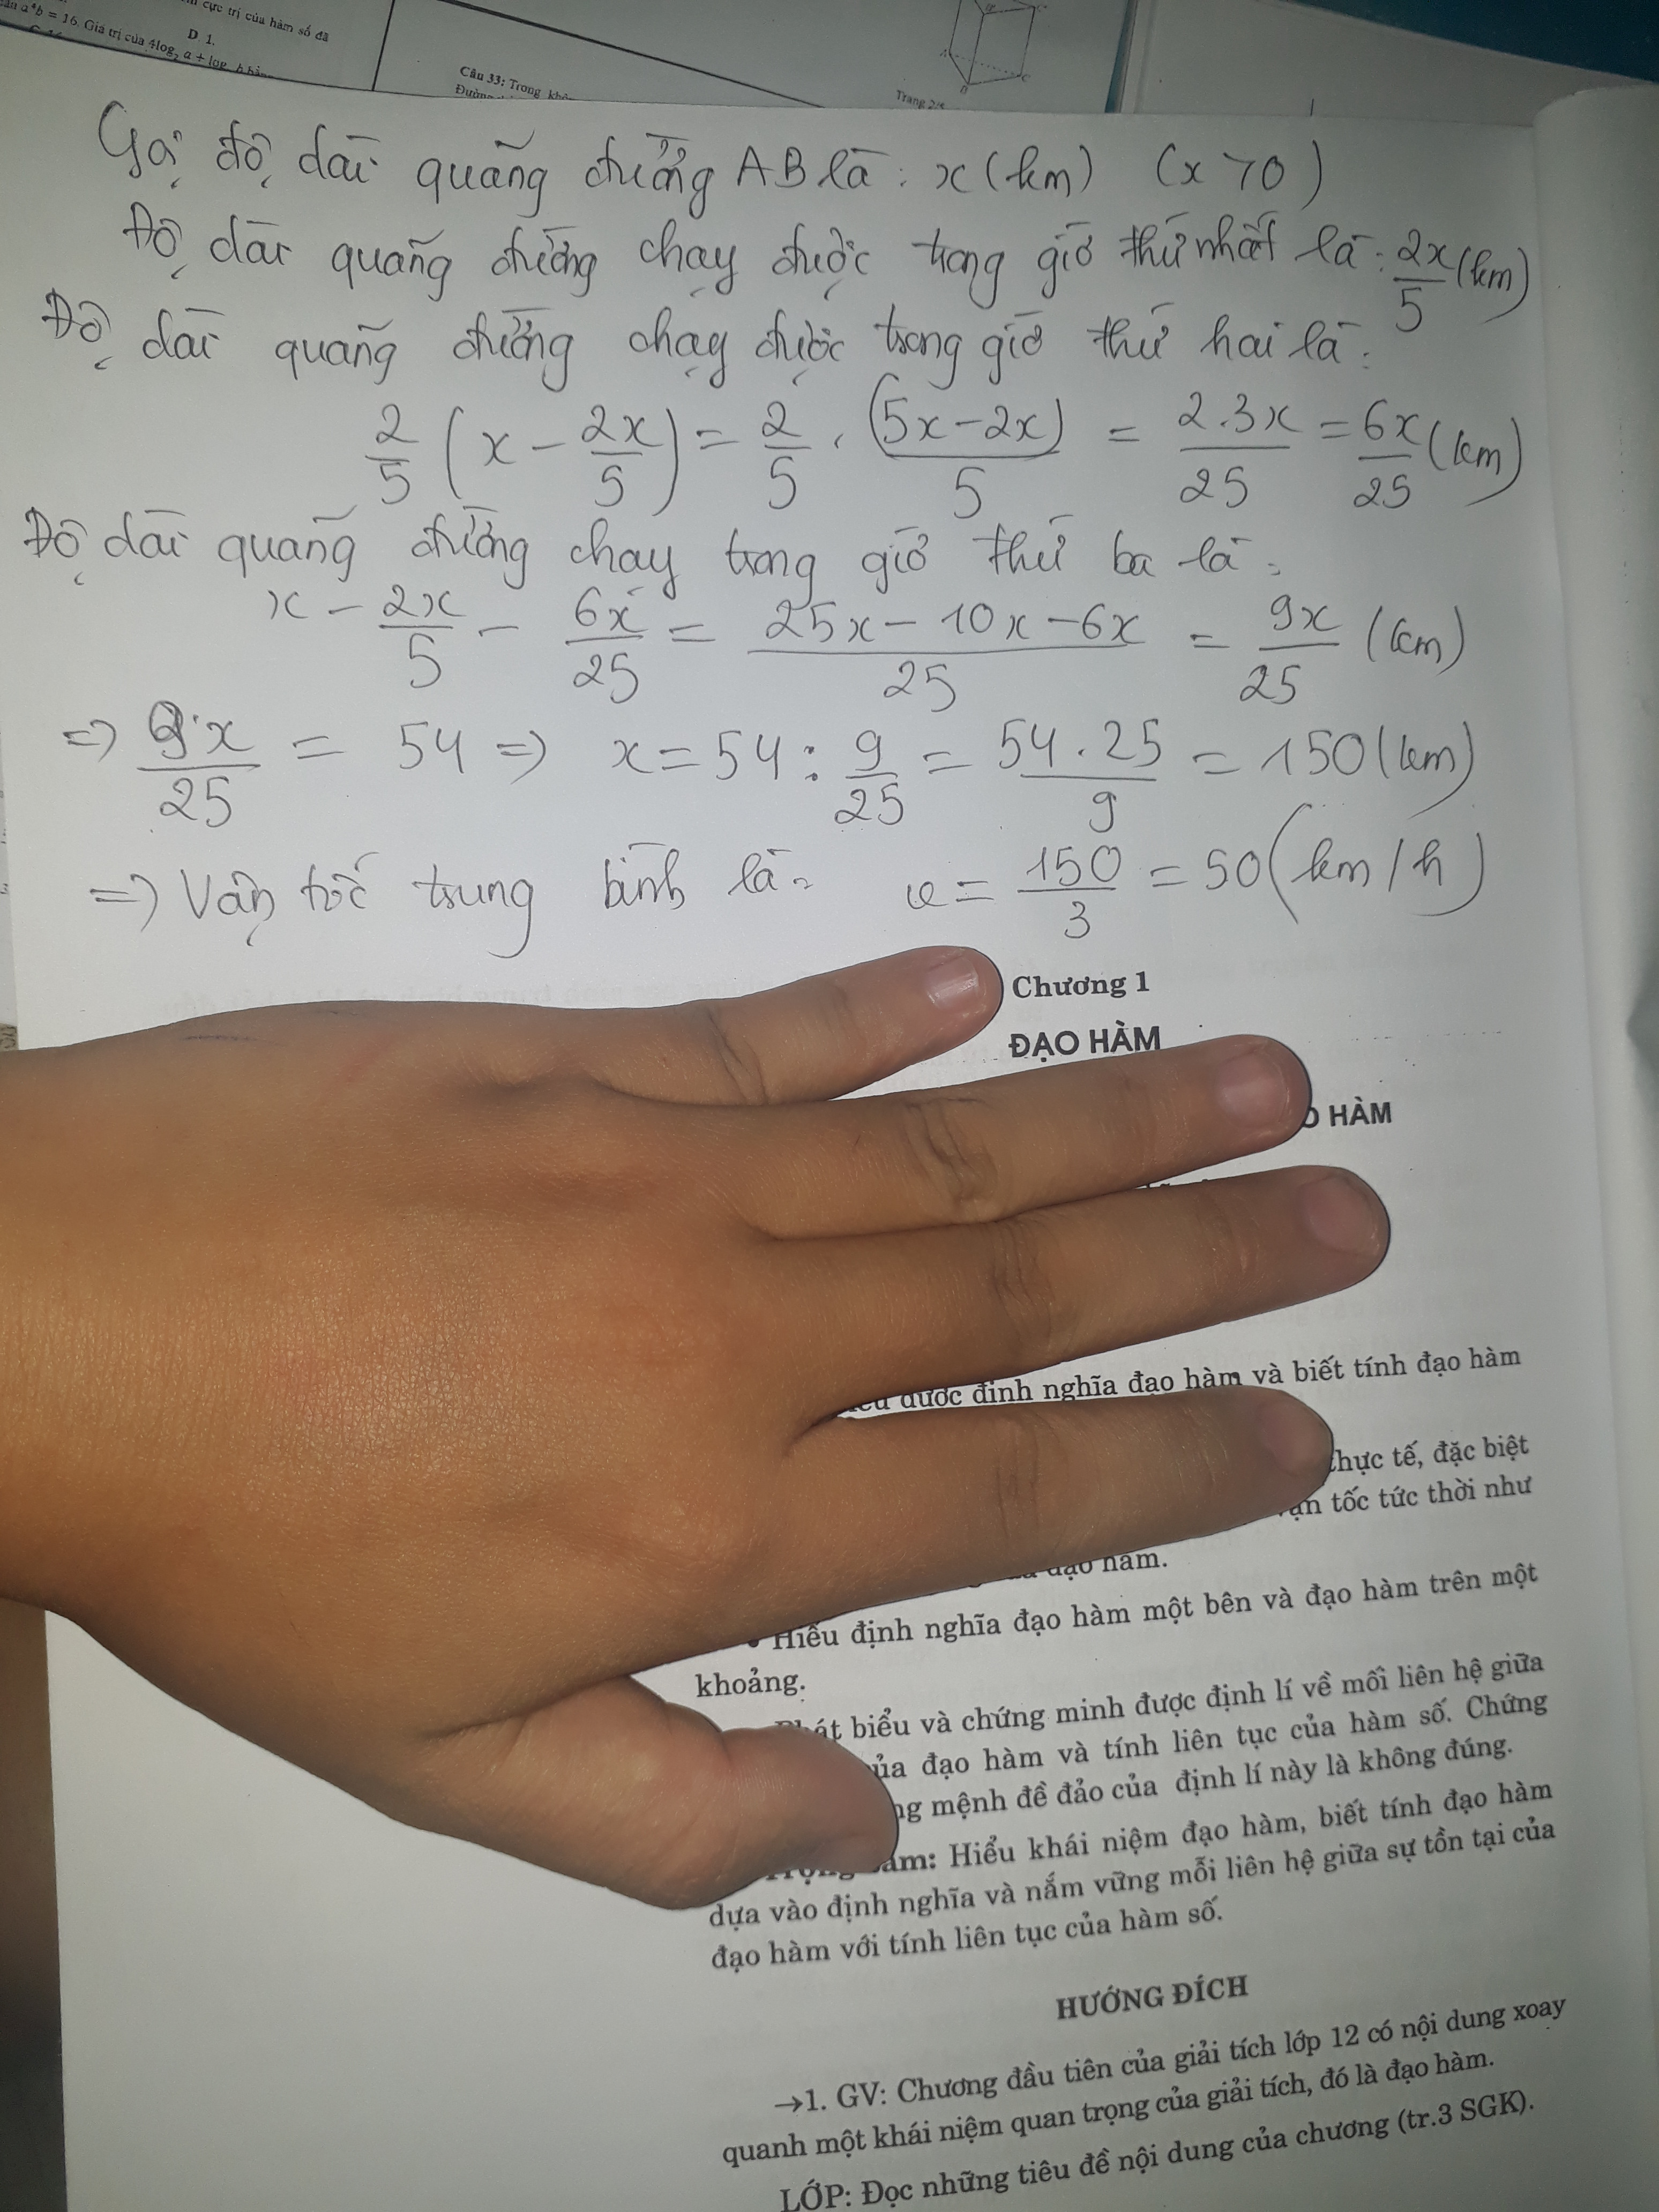 cực trị của hàm số đã
a⁴b = 16. Giá trị của 4log₂ a + log
D 1.
Câu 33: Trong
Trang 2/
Gọi độ dài quãng đường AB là: x (km) (x > 0)
Độ dài quãng đường chạy được trong giờ thứ nhất là: 2x/5 (km)
Độ dài quãng đường chạy được trong giờ thứ hai là:
2/5 (x - 2x/5) = 2/5 . (5x - 2x)/5 = 2.3x/25 = 6x/25 (km)
Độ dài quãng đường chạy trong giờ thứ ba là:
x - 2x/5 - 6x/25 = (25x - 10x - 6x)/25 = 9x/25 (km)
=> 9x/25 = 54 => x = 54 : 9/25 = 54.25/9 = 150 (km)
=> Vận tốc trung bình là: v = 150/3 = 50 (km/h)
Chương 1
ĐẠO HÀM
HÀM
được định nghĩa đạo hàm và biết tính đạo hàm
thực tế, đặc biệt
vận tốc tức thời như
đạo hàm.
• Hiểu định nghĩa đạo hàm một bên và đạo hàm trên một
khoảng.
Phát biểu và chứng minh được định lí về mối liên hệ giữa
của đạo hàm và tính liên tục của hàm số. Chứng
mệnh đề đảo của định lí này là không đúng.
Trọng tâm: Hiểu khái niệm đạo hàm, biết tính đạo hàm
dựa vào định nghĩa và nắm vững mỗi liên hệ giữa sự tồn tại của
đạo hàm với tính liên tục của hàm số.
HƯỚNG ĐÍCH
→1. GV: Chương đầu tiên của giải tích lớp 12 có nội dung xoay
quanh một khái niệm quan trọng của giải tích, đó là đạo hàm.
LỚP: Đọc những tiêu đề nội dung của chương (tr.3 SGK).